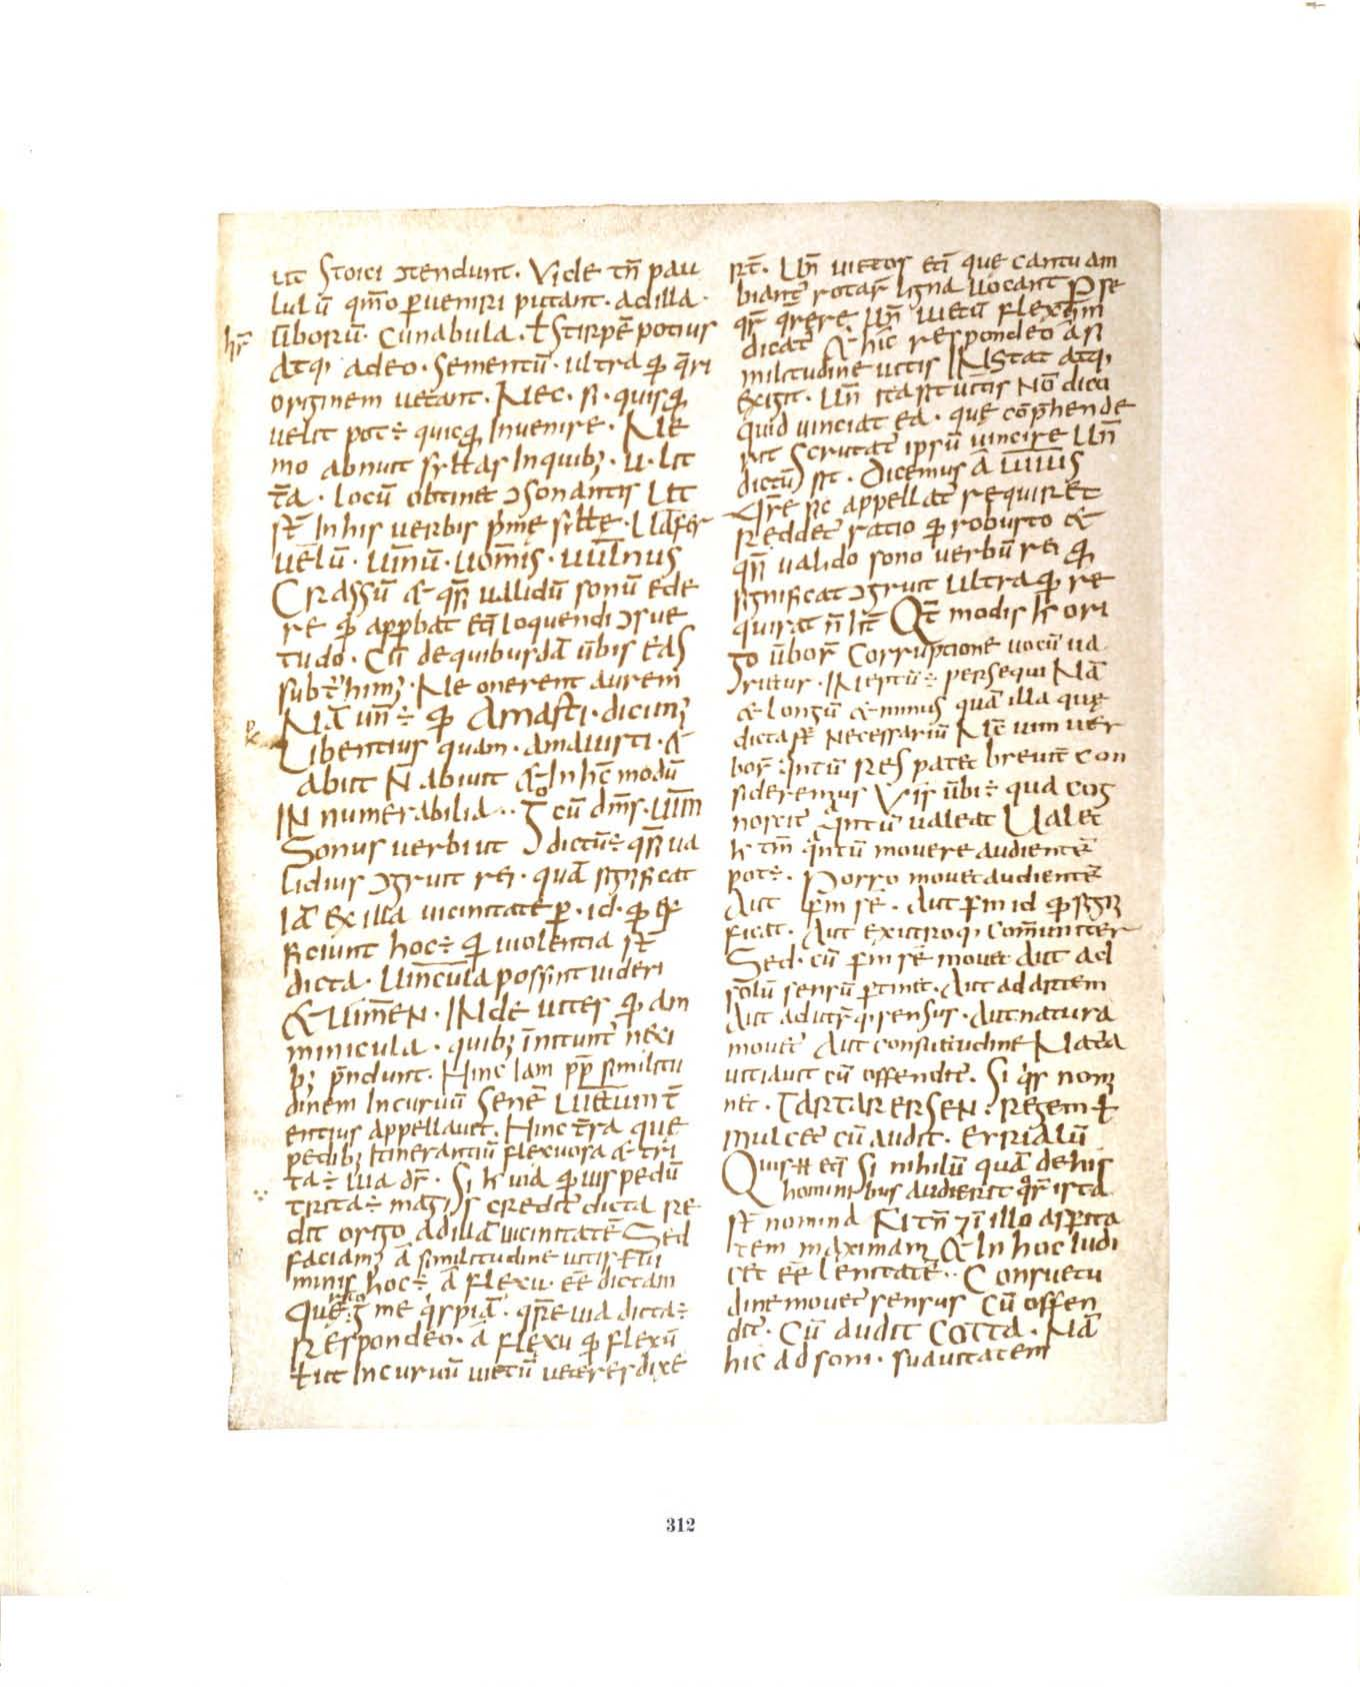 ut Stoici ɔtendunt. Vide tn̄ pau
lulū qm̄o ꝑveniri putant. ad illa.
ūborū. cunabula. ł Stirpē potius
Atq; adeo. Sementū. ultra qđ q̄ri
originem uetant. Nec. si. quisq̄
uelit pot÷ quicq̄ Invenire. Ne
mo abnuit sylłas In quib;. u. lit
t̄a. locū obtinet ɔsonantis Ut
st̄ In his uerbis prim̄e syłłe.
uēlū. uīnū. uom̄is. uūlnus
Crassū & qs̄i ualidū sonū ede
re qđ apꝓbat etiā loquendi ɔsue
tudo. Cū de quibusdā ūbis
subt̄him;. Ne onerent aurem
Nā un̄÷ qđ Amasti. dicim;
Libentius quam. amauisti. &
abiit N̄ abiuit & In hc̄ modū
IN numerabilia.. g° cū dm̄s. uim
Sonus uerbi ut dictū÷ qs̄i ua
lidius ɔgruit rei. quā significat
Iā ex illa uicinitate ꝑ. id. qđ ef
ficiunt hoc÷ qđ uiolentia st̄
dicta. Uincula possint uideri
& uim̄eN. INde uites qđ am
minicula. quib; innitunt̄ nexi
b; p̄ndunt. Hinc Iam pp̄ similitu
dinem Incuruū Senē Uietum t̄
entius appellauit. Hinc t̄ra que
pedib; Itinerantiū flexuosa & tri
ta÷ uia dr̄. Si h uia qđ uis pedū
trita÷ magis credit̄ dicta re
dit origo ad illā uicinitatē Sed
faciam; ā similitudine uitis ł ui
minis hoc÷ ā flexu. eē dictam
Querit g° me q̇spiā. qr̄e uia dicta÷
Respondeo. ā flexu qđ flexū
ł ut Incuruū uietū ueteres dixe
rt̄. Un̄ uietos etiā que cantu am
biant̄ rotar̄ ligna uocant Pse
qr̄ q̄rere Un̄ uietū flexum
dicat̄ & hic̄ respondeo ā si
militudine uitis INStat atq;
Exigit. Un̄ ita sit uitis Nōm dico
quid uinciat ea. quę cōp̄hende
rit Scrutat̄ ipsū uincire Un̄
dictū sit. Dicemus ā uī
Qr̄e sic appellat̄ requiret
Reddet̄ ratio qđ robusto &
qs̄i ualido sono uerbū rei qđ
significat ɔgruit Ultra qđ re
quirat n̄ ht̄ Qt̄ modis h ori
go ūbor̄ Corruptione uocū ua
riatur. INeptū÷ persequi Nā
& longū & minus quā illa quę
dicta st̄ Necessariū Nc̄ uim uer
bor̄ .intū Res patet breuit̄ con
siderem;us Vis ūbi÷ qua cog
noscit̄ q̇intū ualeat Ualet
h tm̄ q̇ntū mouere audientē
pot÷. Porro mouet audientē
Aut s̄m sē. Aut s̄m id qđ sign
ficat. Aut ex utroq; com̄uniter
Sed. cū s̄m sē mouet Aut ad
solū sensū ptinet. Aut ad artem
Aut ad utr̄q; sensus. Aut natura
mouet̄ Aut consuetudine Natura
uti aut cū offendit̄. Si q̇s nom;
net. TARTARERSEN. regem ł
mulcet̄ cū audit. Errialū
Quis etiā Si nihilū quā de his
hominibus audierit q̇r̄ ista
st̄ nomina N̄ tn̄ & ī illo asperita
tem maximam & In hoc Iudi
cet eē lenitatē.. Consuetu
dine mouet̄ sensus cū offen
dit̄. Cū audit Cotta. Nā
hic ad soni. suauitatem
312